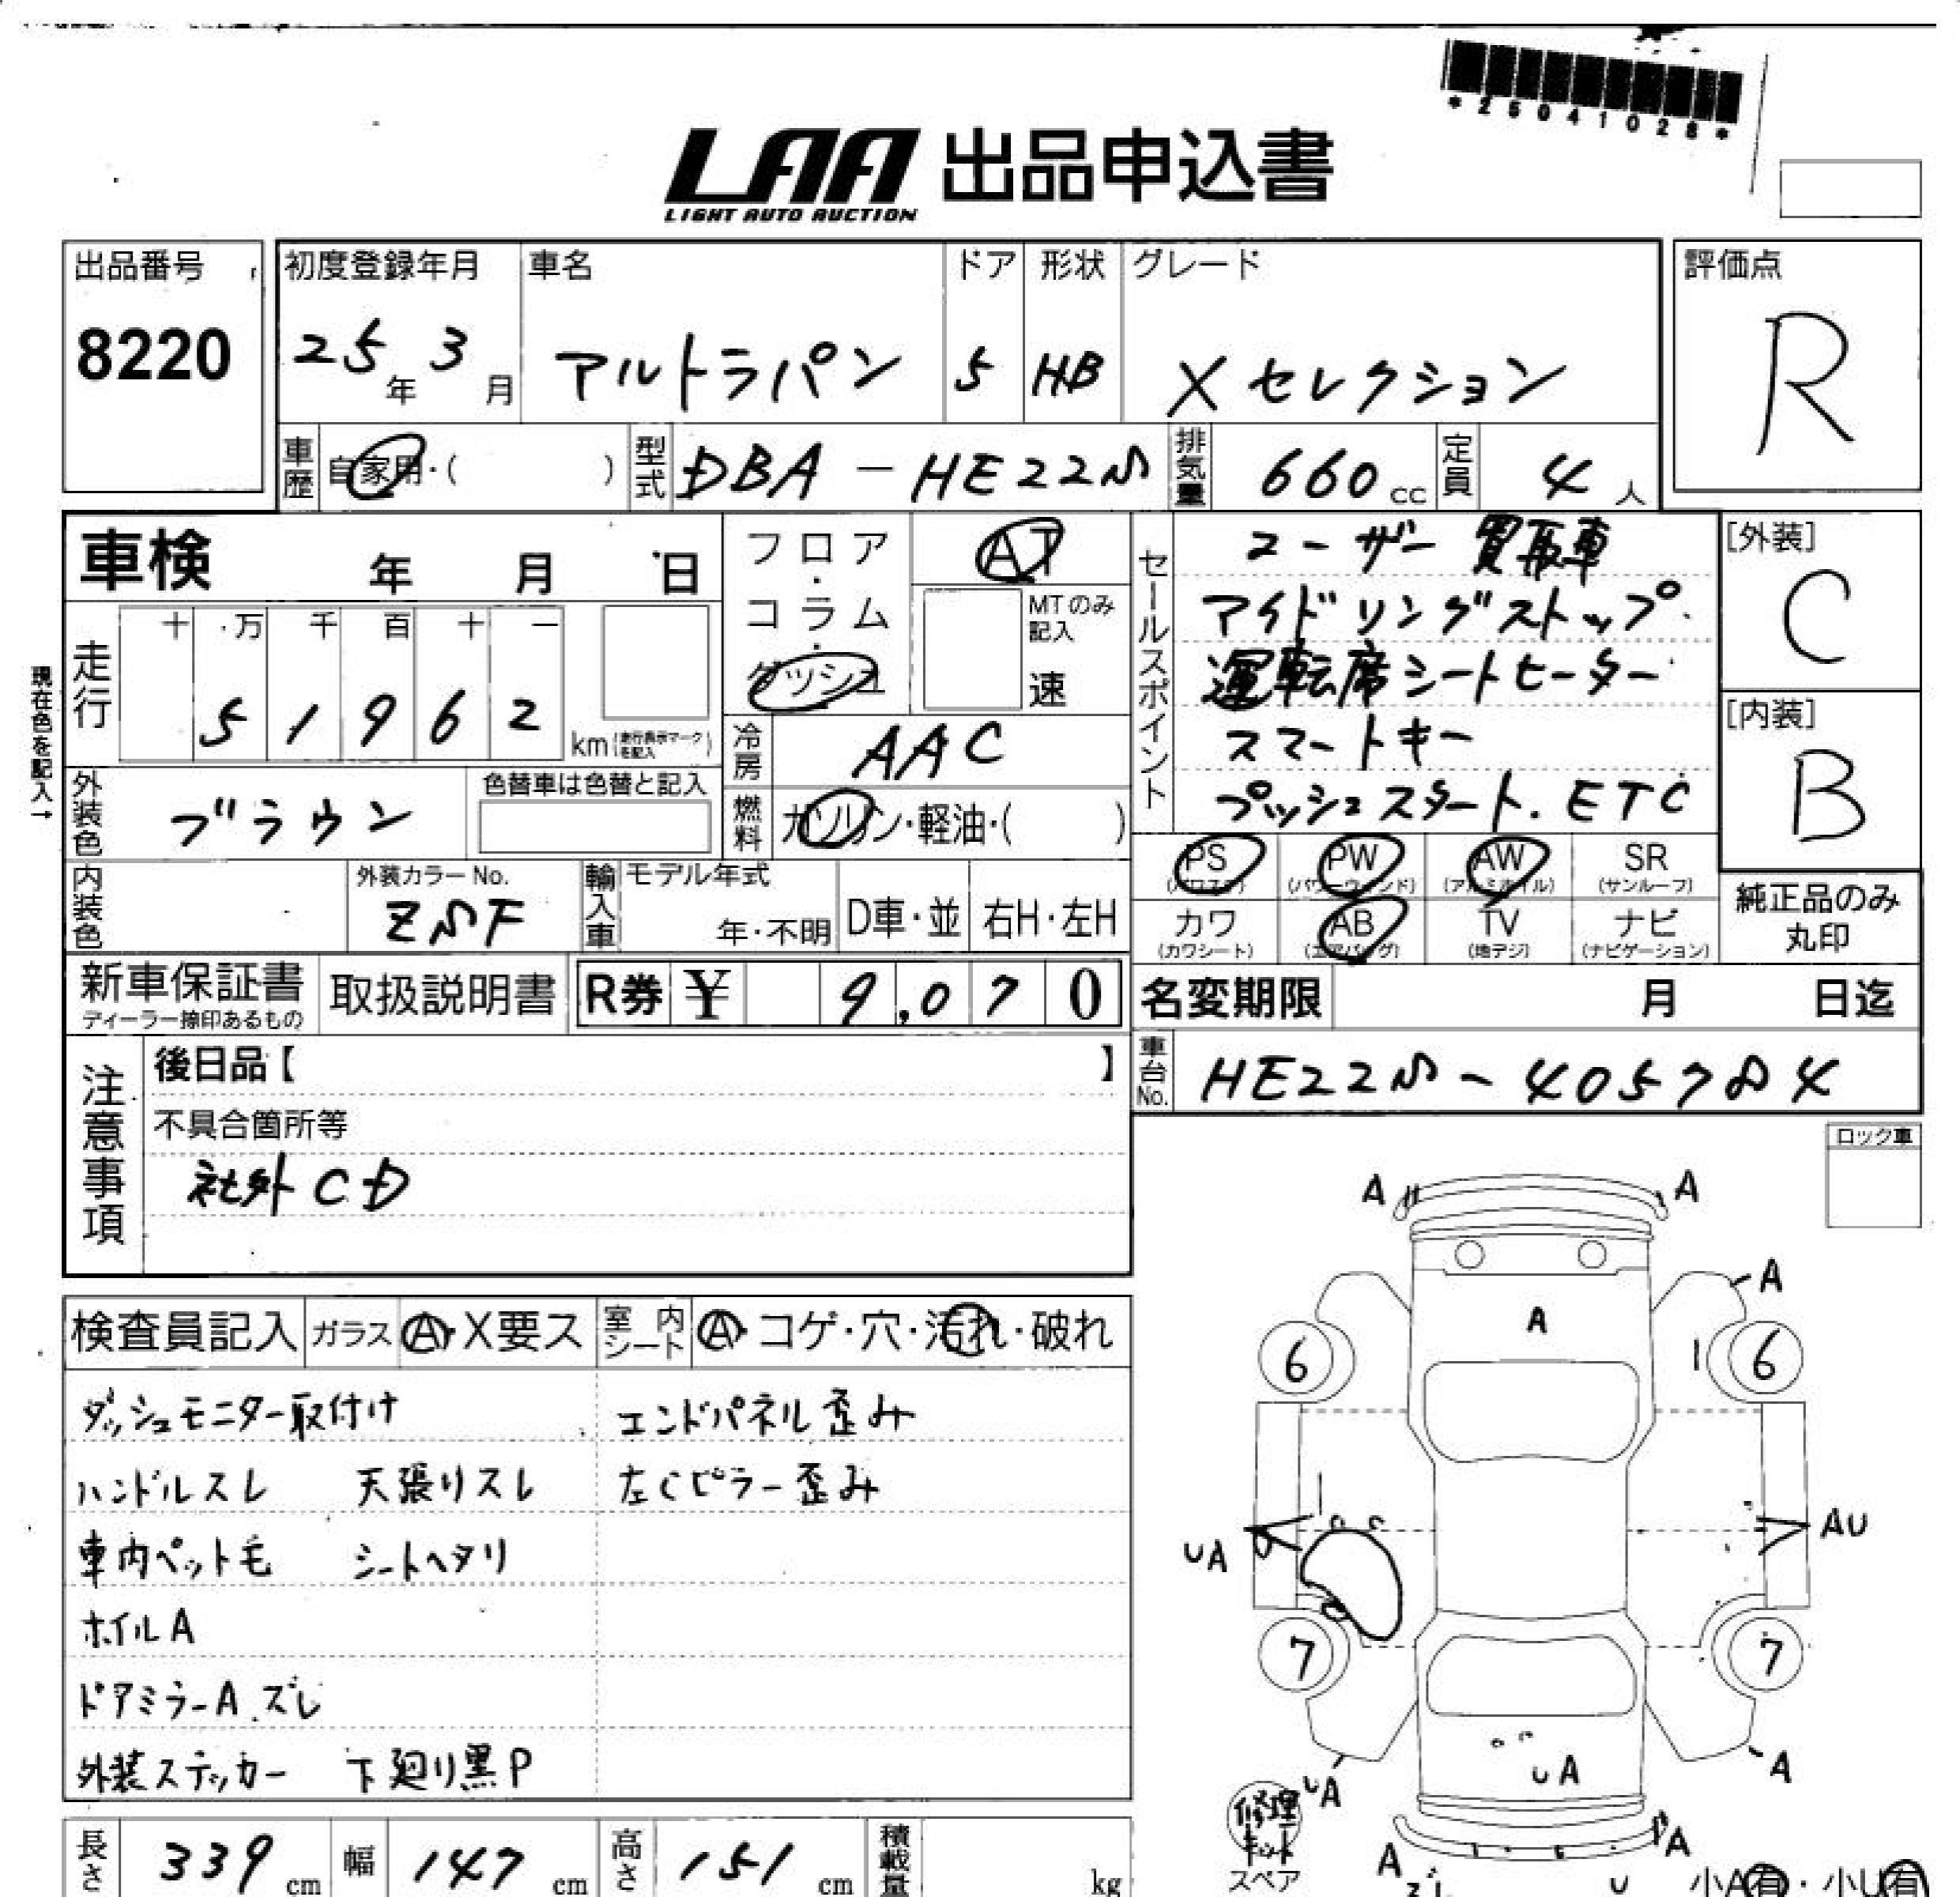 *25041028*
LAA 出品申込書
LIGHT AUTO AUCTION
出品番号
8220
初度登録年月
25年 3月
車名
アルトラパン
ドア
5
形状
HB
グレード
Xセレクション
評価点
R
車歴 自家用・( )
型式 DBA-HE22S
排気量 660cc
定員 4人
車検 年 月 日
現在色を記入→
走行 十 万 千 百 十 一
51962 km(走行表示マークを記入)
外装色 ブラウン
色替車は色替と記入
内装色
外装カラーNo.
ZSF
フロア・コラム・ダッシュ
AT
MTのみ記入
速
冷房 AAC
燃料 ガソリン・軽油・( )
輸入車 モデル年式
年・不明 D車・並 右H・左H
セールスポイント
ユーザー買取車
アイドリングストップ.
運転席シートヒーター
スマートキー
プッシュスタート.ETC
[外装]
C
[内装]
B
PS (パワステ) PW (パワーウィンド) AW (アルミホイル) SR (サンルーフ)
カワ (カワシート) AB (エアバッグ) TV (地デジ) ナビ (ナビゲーション)
純正品のみ
丸印
新車保証書
ディーラー捺印あるもの
取扱説明書
R券 ¥ 9,070
名変期限 月 日迄
車台No. HE22S-405784
注意事項
後日品【 】
不具合箇所等
社外CD
ロック車
検査員記入 ガラス A・X要ス 室内シート A・コゲ・穴・汚れ・破れ
ダッシュモニター取付け エンドパネル歪み
ハンドルスレ 天張りスレ 左Cピラー歪み
車内ペット毛 シートヘタリ
ホイルA
ドアミラーA.ズレ
外装ステッカー 下廻り黒P
A A
A
A
6 6
UA AU
7 7
UA UA A
修理キット
スペア
A A
U
小A有・小U有
長さ 339cm 幅 147cm 高さ 151cm 積載量 kg